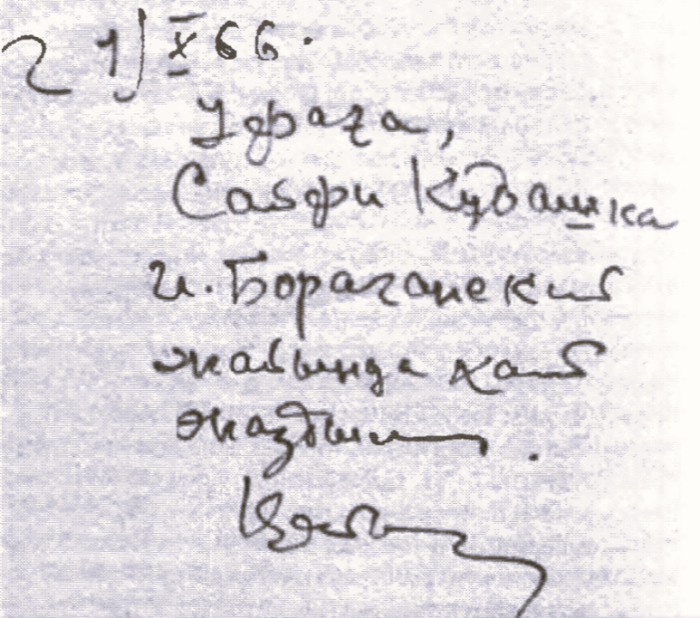 1/X 66.
Уфаға,
Сабфи Кудашка
и. Бораганский
жайында хат
жаздым.